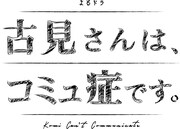 よるドラ
古見さんは、
コミュ症です。
Komi Can't Communicate